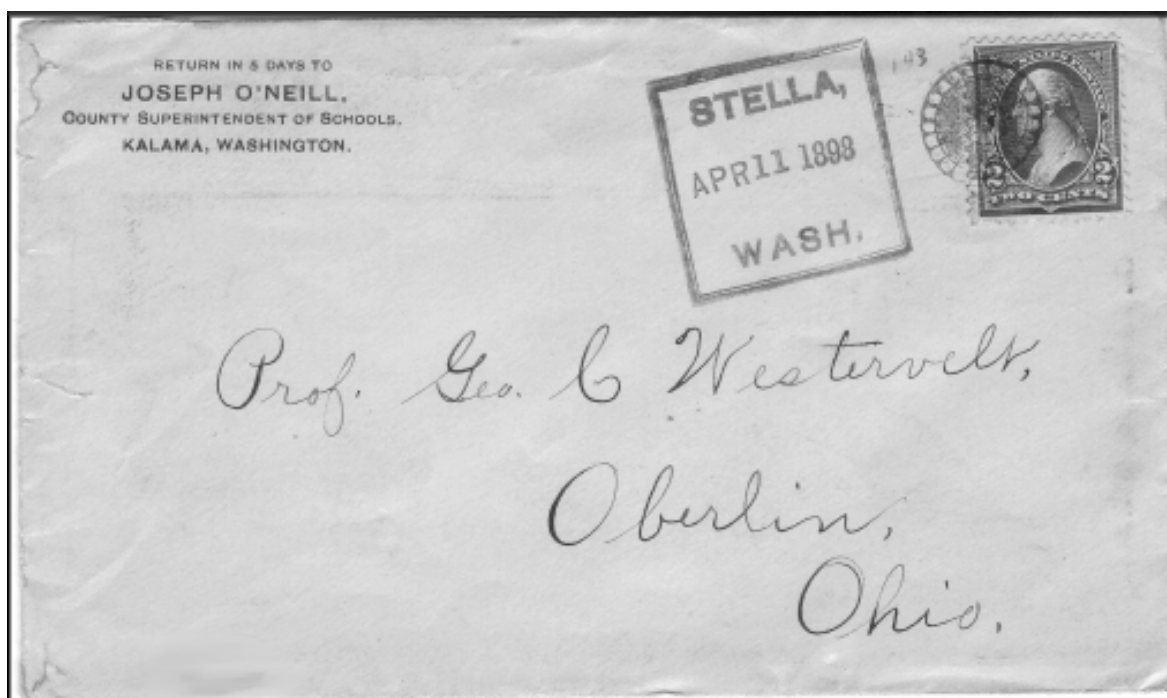 RETURN IN 5 DAYS TO
JOSEPH O'NEILL,
COUNTY SUPERINTENDENT OF SCHOOLS,
KALAMA, WASHINGTON.
STELLA,
APR 11 1898
WASH.
143
2 2
TWO CENTS
Prof. Geo. C Westervelt,
Oberlin,
Ohio.